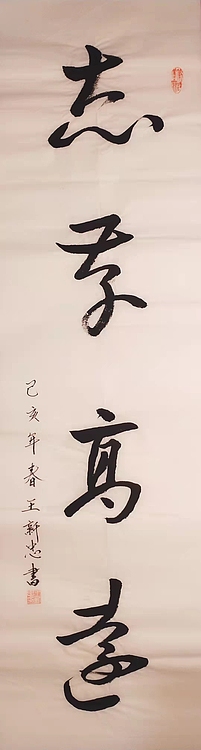 志存高遠
己亥年春王新忠書